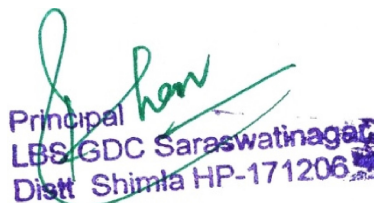 Principal
LBS GDC Saraswatinagar
Distt Shimla HP-171206